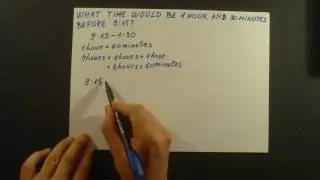 WHAT TIME WOULD BE 1 HOUR AND 30 MINUTES
BEFORE 9:15?
9:15 - 1:30
1 hour = 60 minutes
9 hours = 8 hours + 1 hour
= 8 hours + 60 minutes
9:15